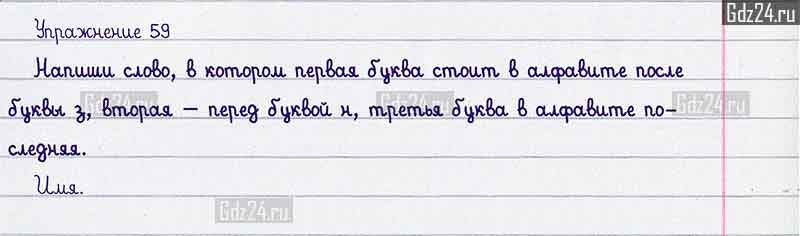 Gdz24.ru
Упражнение 59
Напиши слово, в котором первая буква стоит в алфавите после
Gdz24.ru Gdz24.ru Gdz24.ru
буквы з, вторая — перед буквой н, третья буква в алфавите по-
следняя.
Имя.
Gdz24.ru